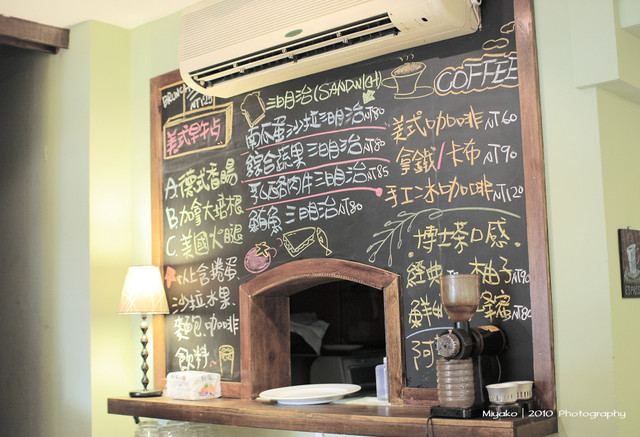 BRUNCH
美式早午点
A.德式香腸
B.加拿大培根
C.美國火腿
以上含捲蛋
沙拉水果
麵包.咖啡
飲料
三明治(SANDWICH)
南瓜蛋沙拉三明治NT80
綜合蔬果三明治NT80
三明治NT85
鮪魚三明治NT80
COFFEE
美式咖啡NT60
拿鐵/卡布NT90
手工冰咖啡NT120
博士茶口感
經典
柚子NT90
鮮
蜂蜜NT80
阿
Miyako | 2010 Photography